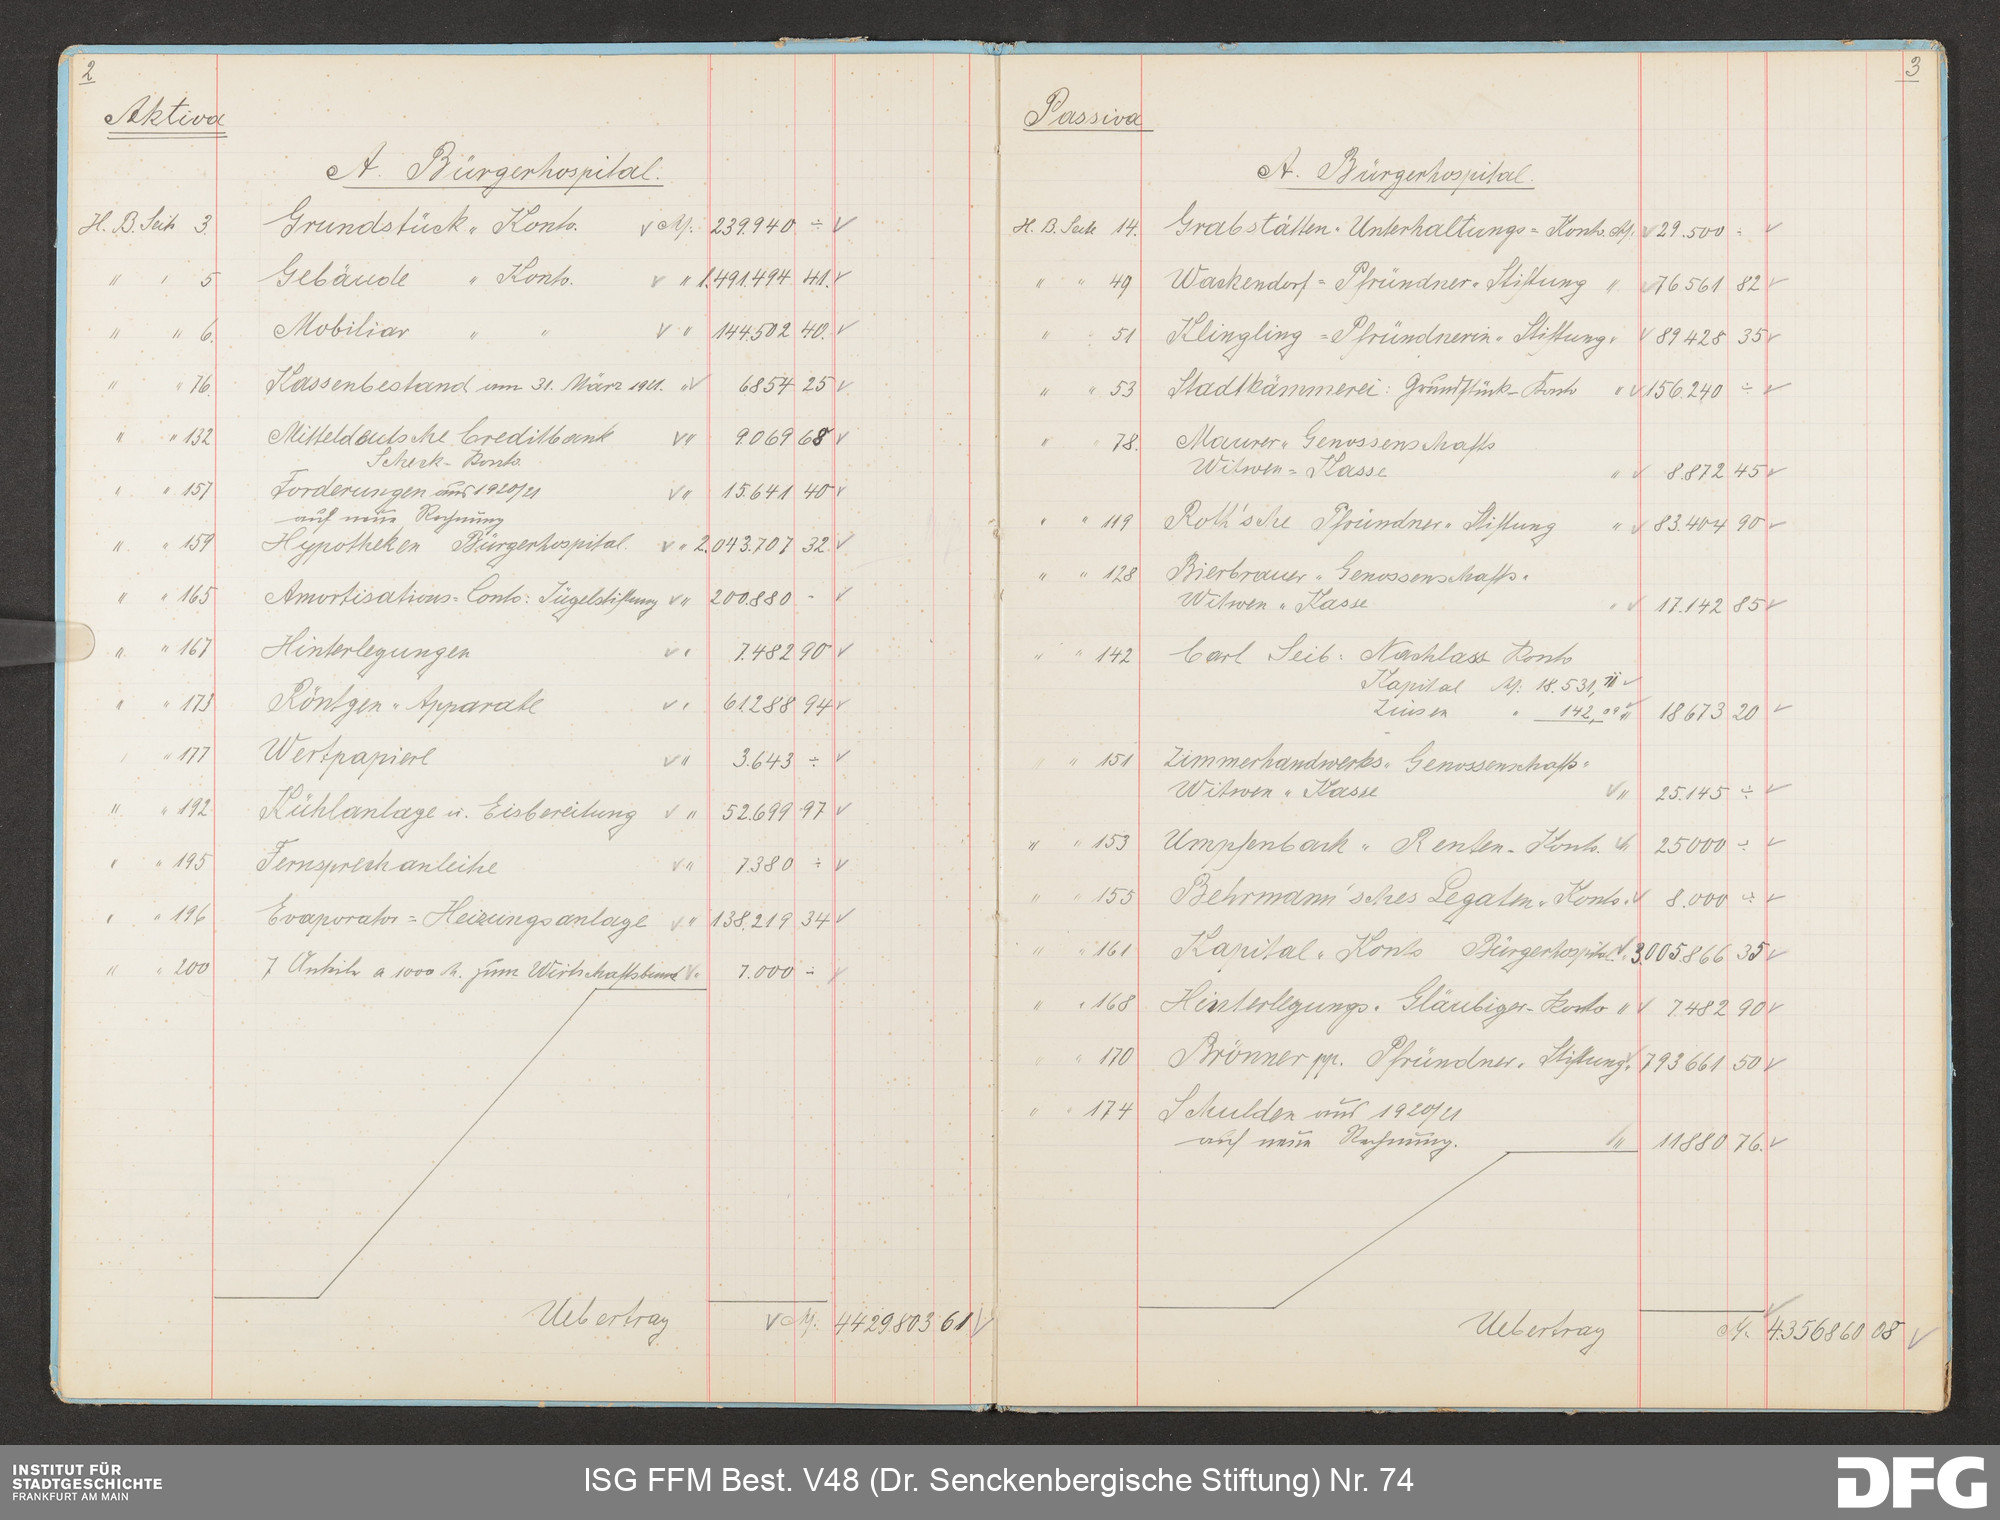 2
Aktiva
A. Bürgerhospital.
H. B. Seite 3. Grundstück - Konto. M. 239.940 ÷
" " 5 Gebäude " Konto. " 1.491.494 41.
" " 6. Mobiliar " " " 144.502 40.
" " 76. Kassenbestand am 31. März 1921. " 6854 25
" " 132 Mitteldeutsche Creditbank " 9.069 68
Scheck-Konto.
" " 157 Forderungen aus 1920/21 " 15.641 40
auf neue Rechnung
" " 159 Hypotheken Bürgerhospital. " 2.043.707 32.
" " 165 Amortisations-Conto: Jügelstiftung " 200.880 -
" " 167 Hinterlegungen " 7.482 90
" " 173 Röntgen-Apparate " 61288 94
" " 177 Wertpapiere " 3.643 ÷
" " 192 Kühlanlage u. Eisbereitung " 52.699 97
" " 195 Fernsprechanleihe " 7.380 ÷
" " 196 Evaporator-Heizungsanlage " 138.219 34
" " 200 7 Anteile a 1000 M. zum Wirtschaftsbund " 7.000 ÷
Uebertrag M. 4429803 61
3
Passiva
A. Bürgerhospital.
H. B. Seite 14. Grabstätten-Unterhaltungs-Konto. M. 29.500 -
" " 49 Wackendorf-Pfründner-Stiftung " 76561 82
" " 51 Klingling-Pfründnerin-Stiftung " 89428 35
" " 53 Stadtkämmerei: Grundstück-Konto " 156.240 ÷
" " 78. Maurer-Genossenschafts
Witwen-Kasse " 8.872 45
" " 119 Roth'sche Pfründner-Stiftung " 83.404 90
" " 128 Bierbrauer-Genossenschafts-
Witwen-Kasse " 17.142 85
" " 142 Carl Seib: Nachlass Konto
Kapital M. 18.531,11
Zinsen " 142,09 " 18673 20
" " 151 Zimmerhandwerks-Genossenschafts-
Witwen-Kasse " 25.145 ÷
" " 153 Umpfenbach-Renten-Konto. " 25000 ÷
" " 155 Behrmann'sches Legaten-Konto. " 8.000 ÷
" " 161 Kapital-Konto Bürgerhospital " 3.005.866 35
" " 168 Hinterlegungs-Gläubiger-Konto " 7.482 90
" " 170 Brönner pp. Pfründner-Stiftung " 793661 50
" " 174 Schulden aus 1920/21
auf neue Rechnung. " 11880 76.
Uebertrag M. 4.356860 08
INSTITUT FÜR
STADTGESCHICHTE
FRANKFURT AM MAIN
ISG FFM Best. V48 (Dr. Senckenbergische Stiftung) Nr. 74
DFG